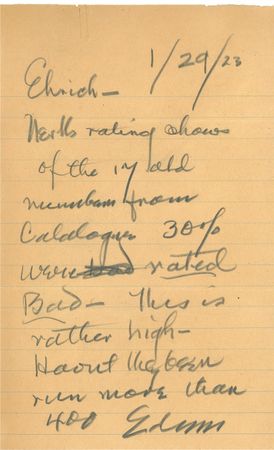 1/29/23
Ehrich—
rating shows
of the 17 old
numbers from
Catalogue 30%
were rated
Bad— This is
rather high—
Havent they been
run more than
400 Edwin